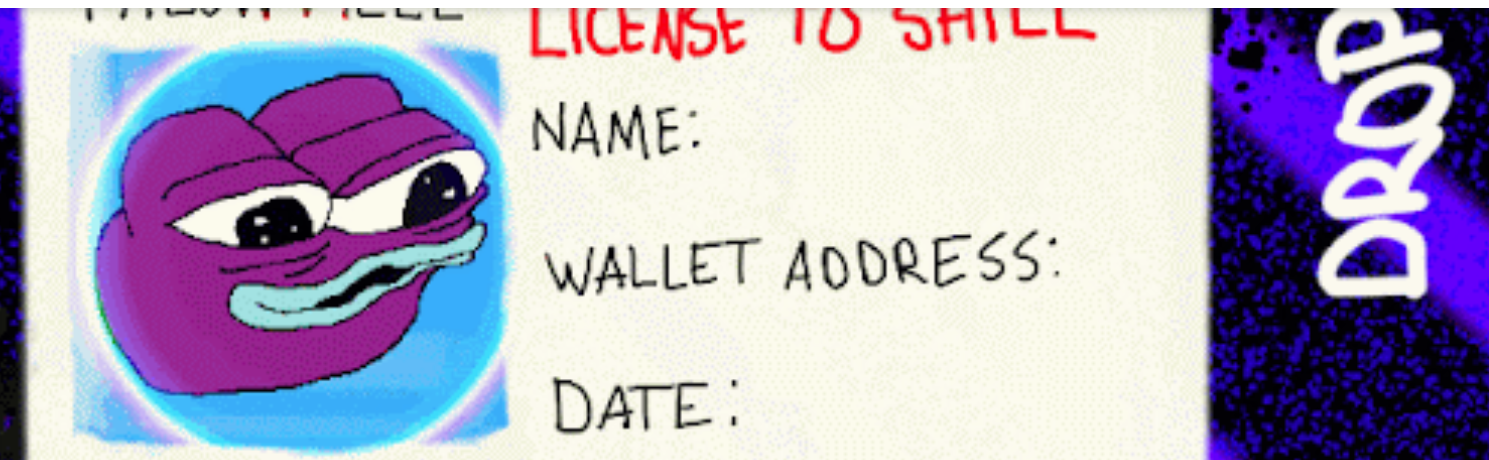 LICENSE TO SHILL
NAME:
WALLET ADDRESS:
DATE:
DROP